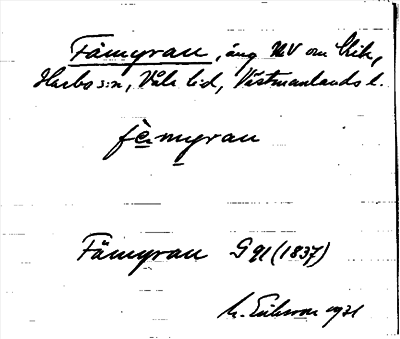 Fämyran, äng NV om Vik,
Harbo s:n, Våla hd, Västmanlands l.
fèmyran
Fämyran G 91 (1837)
M. Eriksson 1931